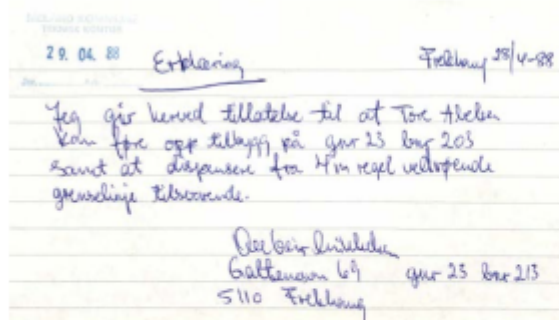 29. 04. 88
Erklæring
Frekhaug 28/4-88
Jeg gir herved tillatelse til at Tore
kan føre opp tilbygg på gnr 23 bnr 203
samt at dispensere fra 4 m regel vedrørende
grenselinje tilsvarende.
69 gnr 23 bnr 213
5110 Frekhaug